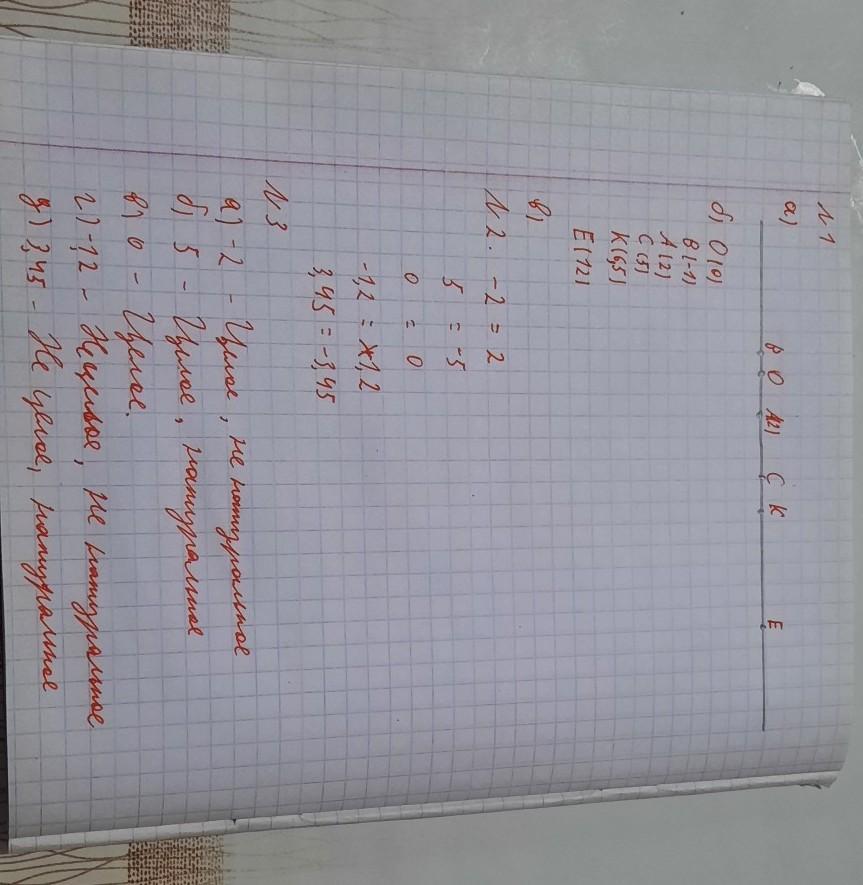 №1
а)
B O A(2) C K E
б) O(0)
B(-1)
A(2)
C(5)
K(6,5)
E(12)
в)
№2. -2 = 2
5 = -5
0 = 0
-1,2 = 1,2
3,45 = -3,45
№3
а) -2 - Целое, не натуральное
б) 5 - Целое, натуральное
в) 0 - Целое.
г) -1,2 - Не целое, не натуральное
д) 3,45 - Не целое, натуральное